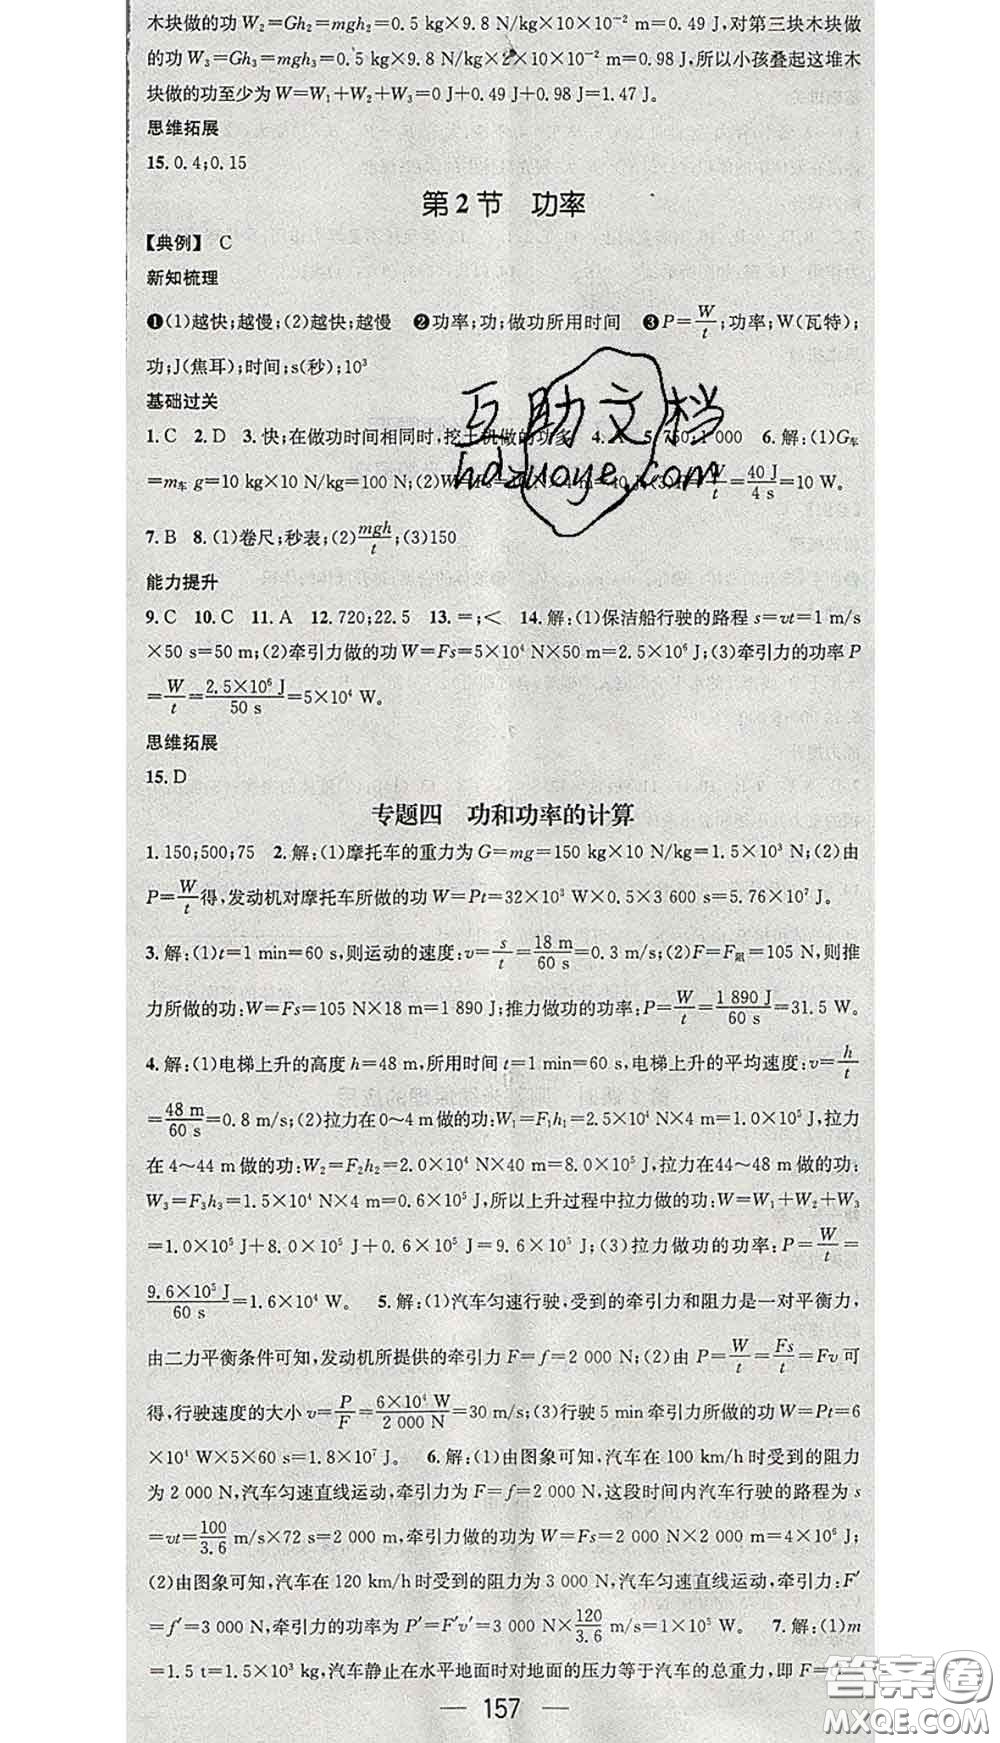 木块做的功W₂=Gh₂=mgh₂=0.5 kg×9.8 N/kg×10×10⁻² m=0.49 J,对第三块木块做
的功W₃=Gh₃=mgh₃=0.5 kg×9.8 N/kg×2×10×10⁻² m=0.98 J,所以小孩叠起这堆木
块做的功至少为W=W₁+W₂+W₃=0 J+0.49 J+0.98 J=1.47 J。
思维拓展
15. 0.4;0.15
第2节 功率
【典例】 C
新知梳理
❶(1)越快;越慢;(2)越快;越慢 ❷功率;功;做功所用时间 ❸P=W/t;功率;W(瓦特);
功;J(焦耳);时间;s(秒);10³
基础过关
1. C 2. D 3. 快;在做功时间相同时,挖土机做的功多 4. 5. 750;1 000 6. 解:(1)G车
=m车 g=10 kg×10 N/kg=100 N;(2)W=Fs=10 N×4 m=40 J;(3)P=W/t=40 J/4 s=10 W。
7. B 8. (1)卷尺;秒表;(2)mgh/t;(3)150
能力提升
9. C 10. C 11. A 12. 720;22.5 13. =;< 14. 解:(1)保洁船行驶的路程 s=vt=1 m/s
×50 s=50 m;(2)牵引力做的功W=Fs=5×10⁴ N×50 m=2.5×10⁶ J;(3)牵引力的功率P
=W/t=2.5×10⁶ J/50 s=5×10⁴ W。
思维拓展
15. D
专题四 功和功率的计算
1. 150;500;75 2. 解:(1)摩托车的重力为G=mg=150 kg×10 N/kg=1.5×10³ N;(2)由
P=W/t得,发动机对摩托车所做的功W=Pt=32×10³ W×0.5×3 600 s=5.76×10⁷ J。
3. 解:(1)t=1 min=60 s,则运动的速度:v=s/t=18 m/60 s=0.3 m/s;(2)F=F阻=105 N,则推
力所做的功:W=Fs=105 N×18 m=1 890 J;推力做功的功率:P=W/t=1 890 J/60 s=31.5 W。
4. 解:(1)电梯上升的高度h=48 m,所用时间t=1 min=60 s,电梯上升的平均速度:v=h/t
=48 m/60 s=0.8 m/s;(2)拉力在0~4 m做的功:W₁=F₁h₁=2.5×10⁴ N×4 m=1.0×10⁵ J,拉力
在4~44 m做的功:W₂=F₂h₂=2.0×10⁴ N×40 m=8.0×10⁵ J,拉力在44~48 m做的功:
W₃=F₃h₃=1.5×10⁴ N×4 m=0.6×10⁵ J,所以上升过程中拉力做的功:W=W₁+W₂+W₃
=1.0×10⁵ J+8.0×10⁵ J+0.6×10⁵ J=9.6×10⁵ J;(3)拉力做功的功率:P=W/t=
9.6×10⁵ J/60 s=1.6×10⁴ W。 5. 解:(1)汽车匀速行驶,受到的牵引力和阻力是一对平衡力,
由二力平衡条件可知,发动机所提供的牵引力F=f=2 000 N;(2)由 P=W/t=Fs/t=Fv可
得,行驶速度的大小v=P/F=6×10⁴ W/2 000 N=30 m/s;(3)行驶5 min牵引力所做的功W=Pt=6
×10⁴ W×5×60 s=1.8×10⁷ J。 6. 解:(1)由图象可知,汽车在100 km/h时受到的阻力
为2 000 N,汽车匀速直线运动,牵引力为F=f=2 000 N,这段时间内汽车行驶的路程为s
=vt=100/3.6 m/s×72 s=2 000 m,牵引力做的功为W=Fs=2 000 N×2 000 m=4×10⁶ J;
(2)由图象可知,汽车在120 km/h时受到的阻力为3 000 N,汽车匀速直线运动,牵引力:F′
=f′=3 000 N,牵引力的功率为P′=F′v′=3 000 N×120/3.6 m/s=1×10⁵ W。 7. 解:(1)m
=1.5 t=1.5×10³ kg,汽车静止在水平地面时对地面的压力等于汽车的总重力,即F=
157
互助文档
hdzuoye.com
答案圈
MXQE.COM